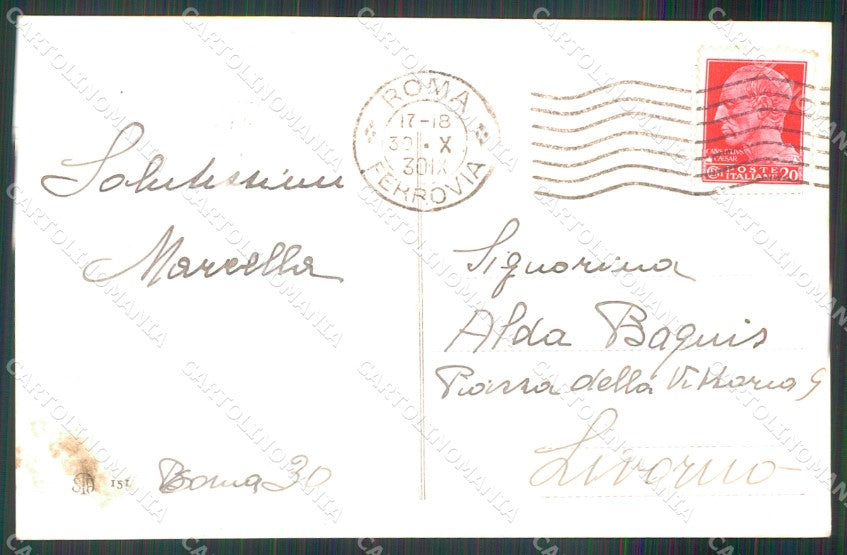 Salutissimi
Marcella
Roma 30
151
ROMA
17-18
30 · X
30 IX
FERROVIA
CAIVS IVLIVS
CAESAR
POSTE
ITALIANE 20
Signorina
Alda Baquis
Piazza della Vittoria 9
Livorno
CARTOLINOMANIA